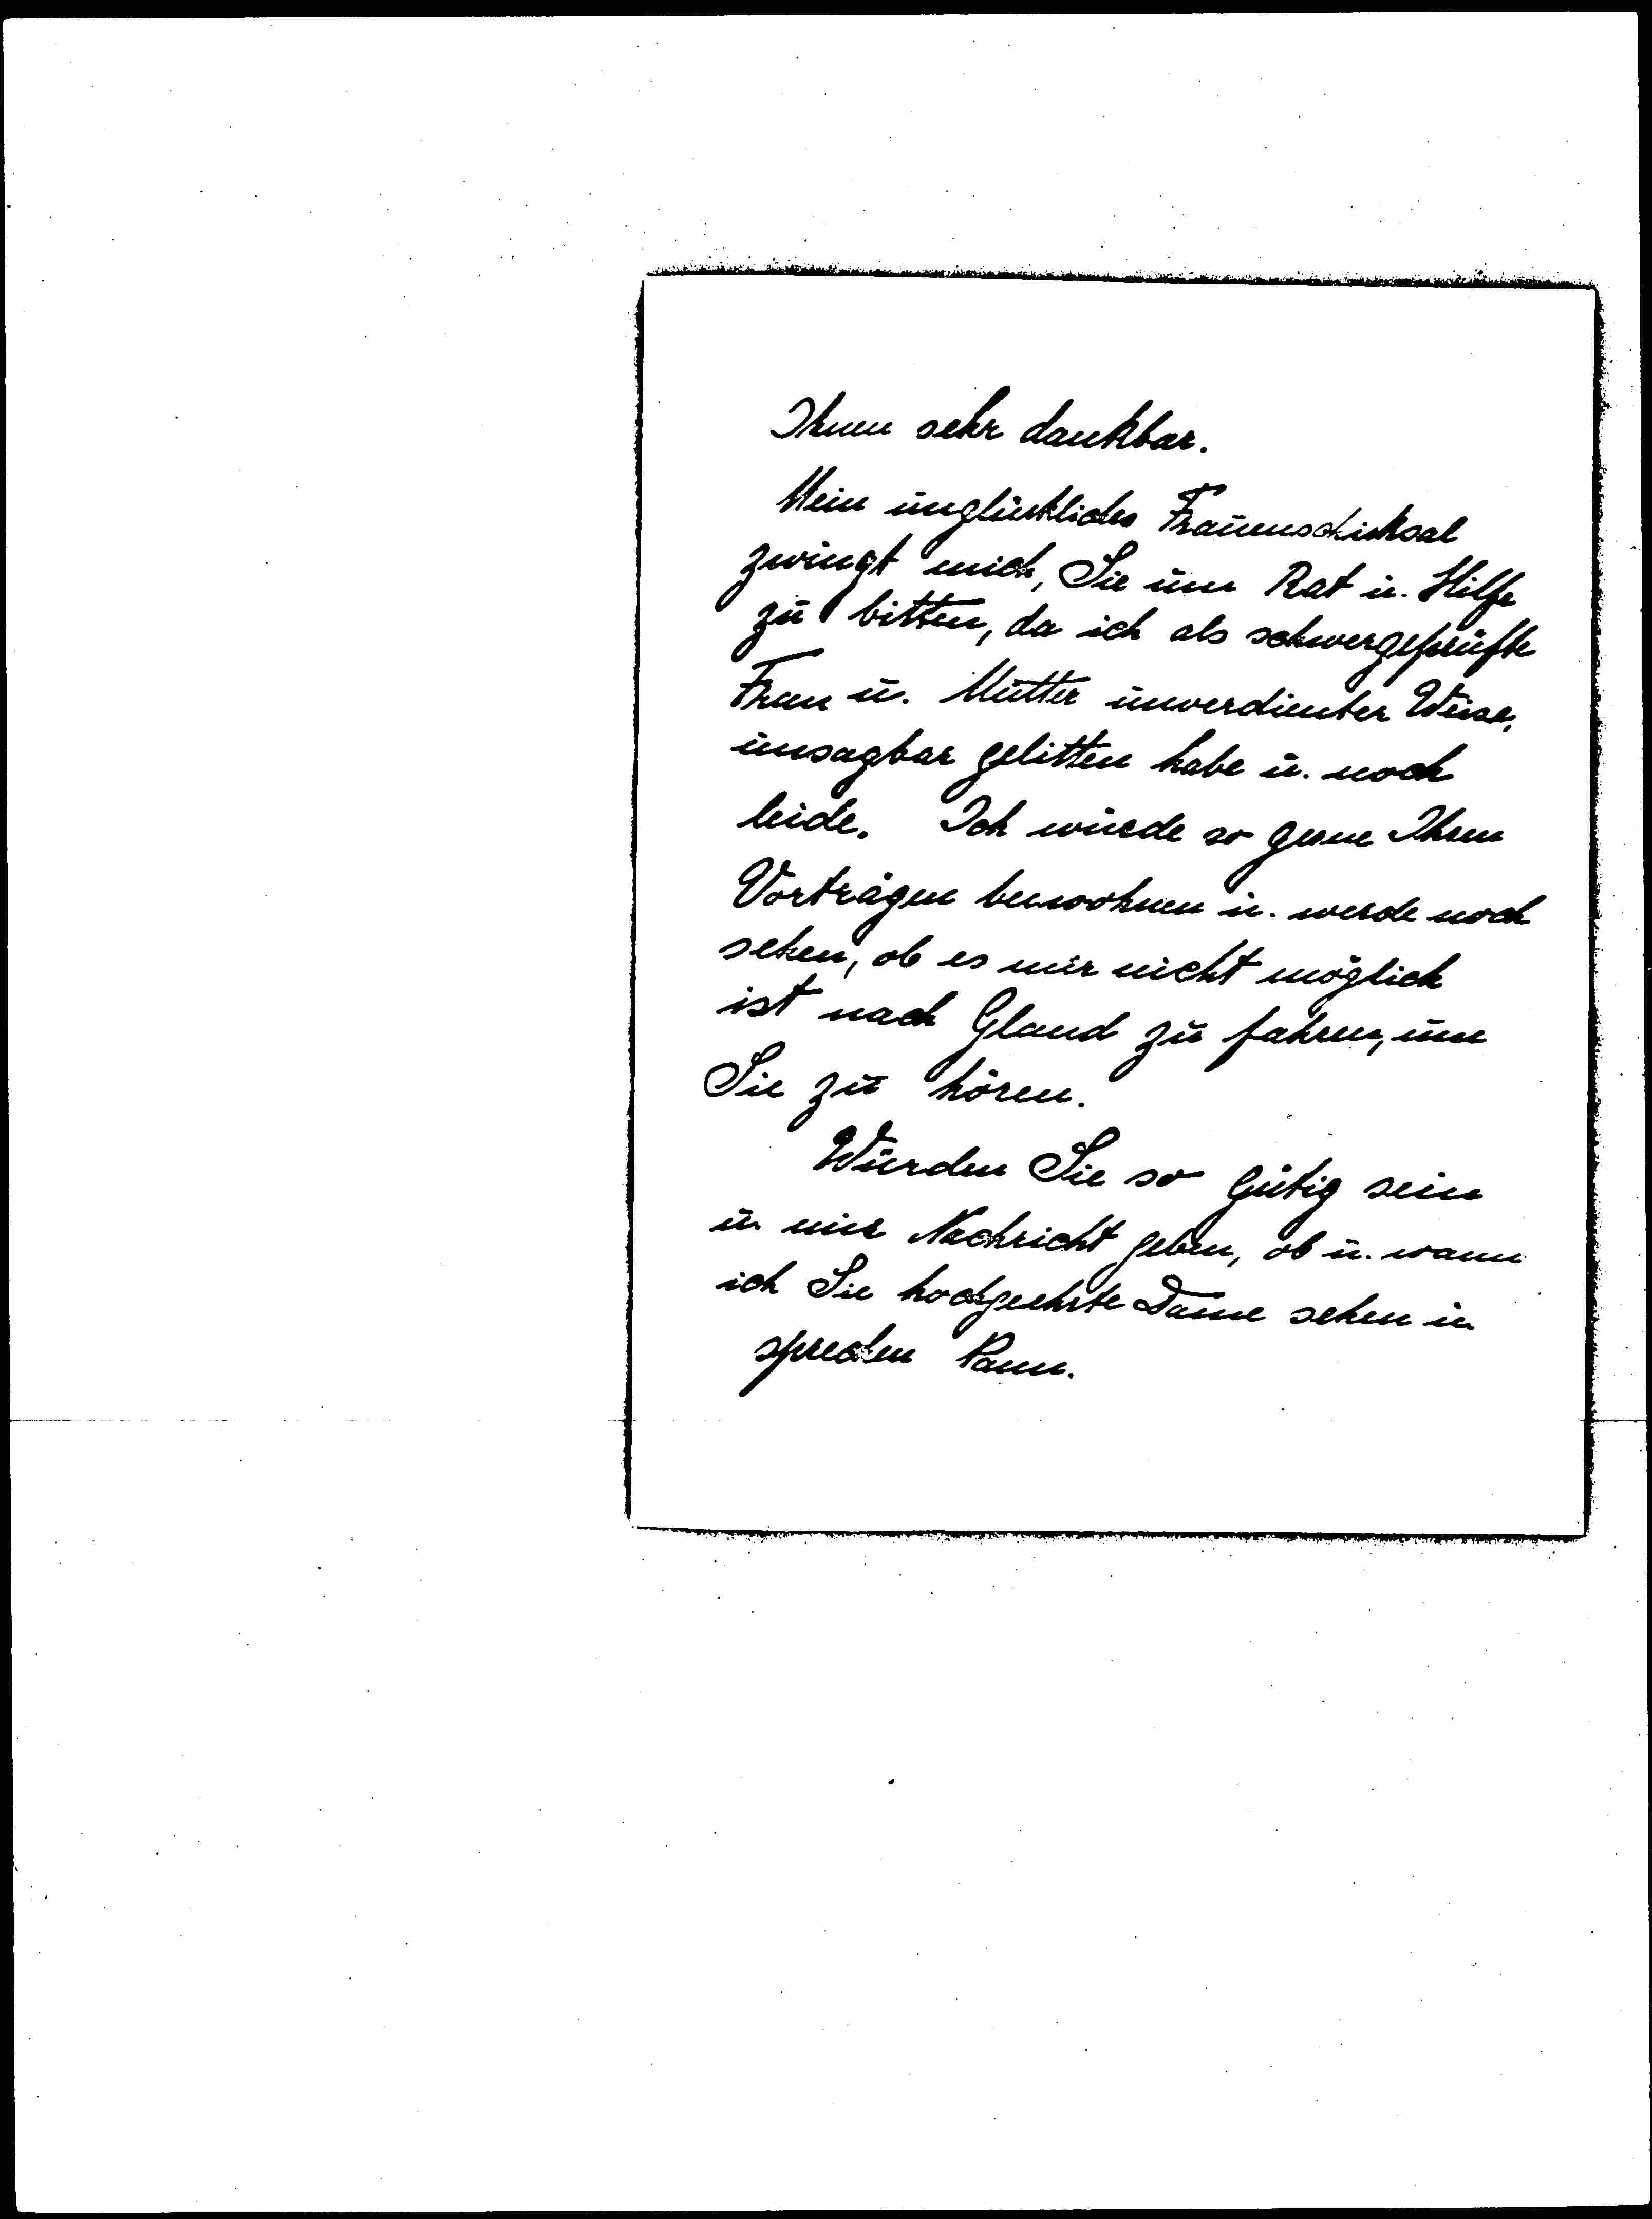 Ihnen sehr dankbar.
Mein unglückliches Frauenschicksal
zwingt mich, Sie um Rat u. Hilfe
zu bitten, da ich als schwergeprüfte
Frau u. Mutter unverdienter Weise,
unsagbar gelitten habe u. noch
leide. Ich würde so gerne Ihren
Vorträgen beiwohnen u. werde noch
sehen, ob es mir nicht möglich
ist nach Gland zu fahren, um
Sie zu hören.
Würden Sie so gütig sein
u. mir Nachricht geben, ob u. wann
ich Sie hochgeehrte Dame sehen u.
sprechen kann.